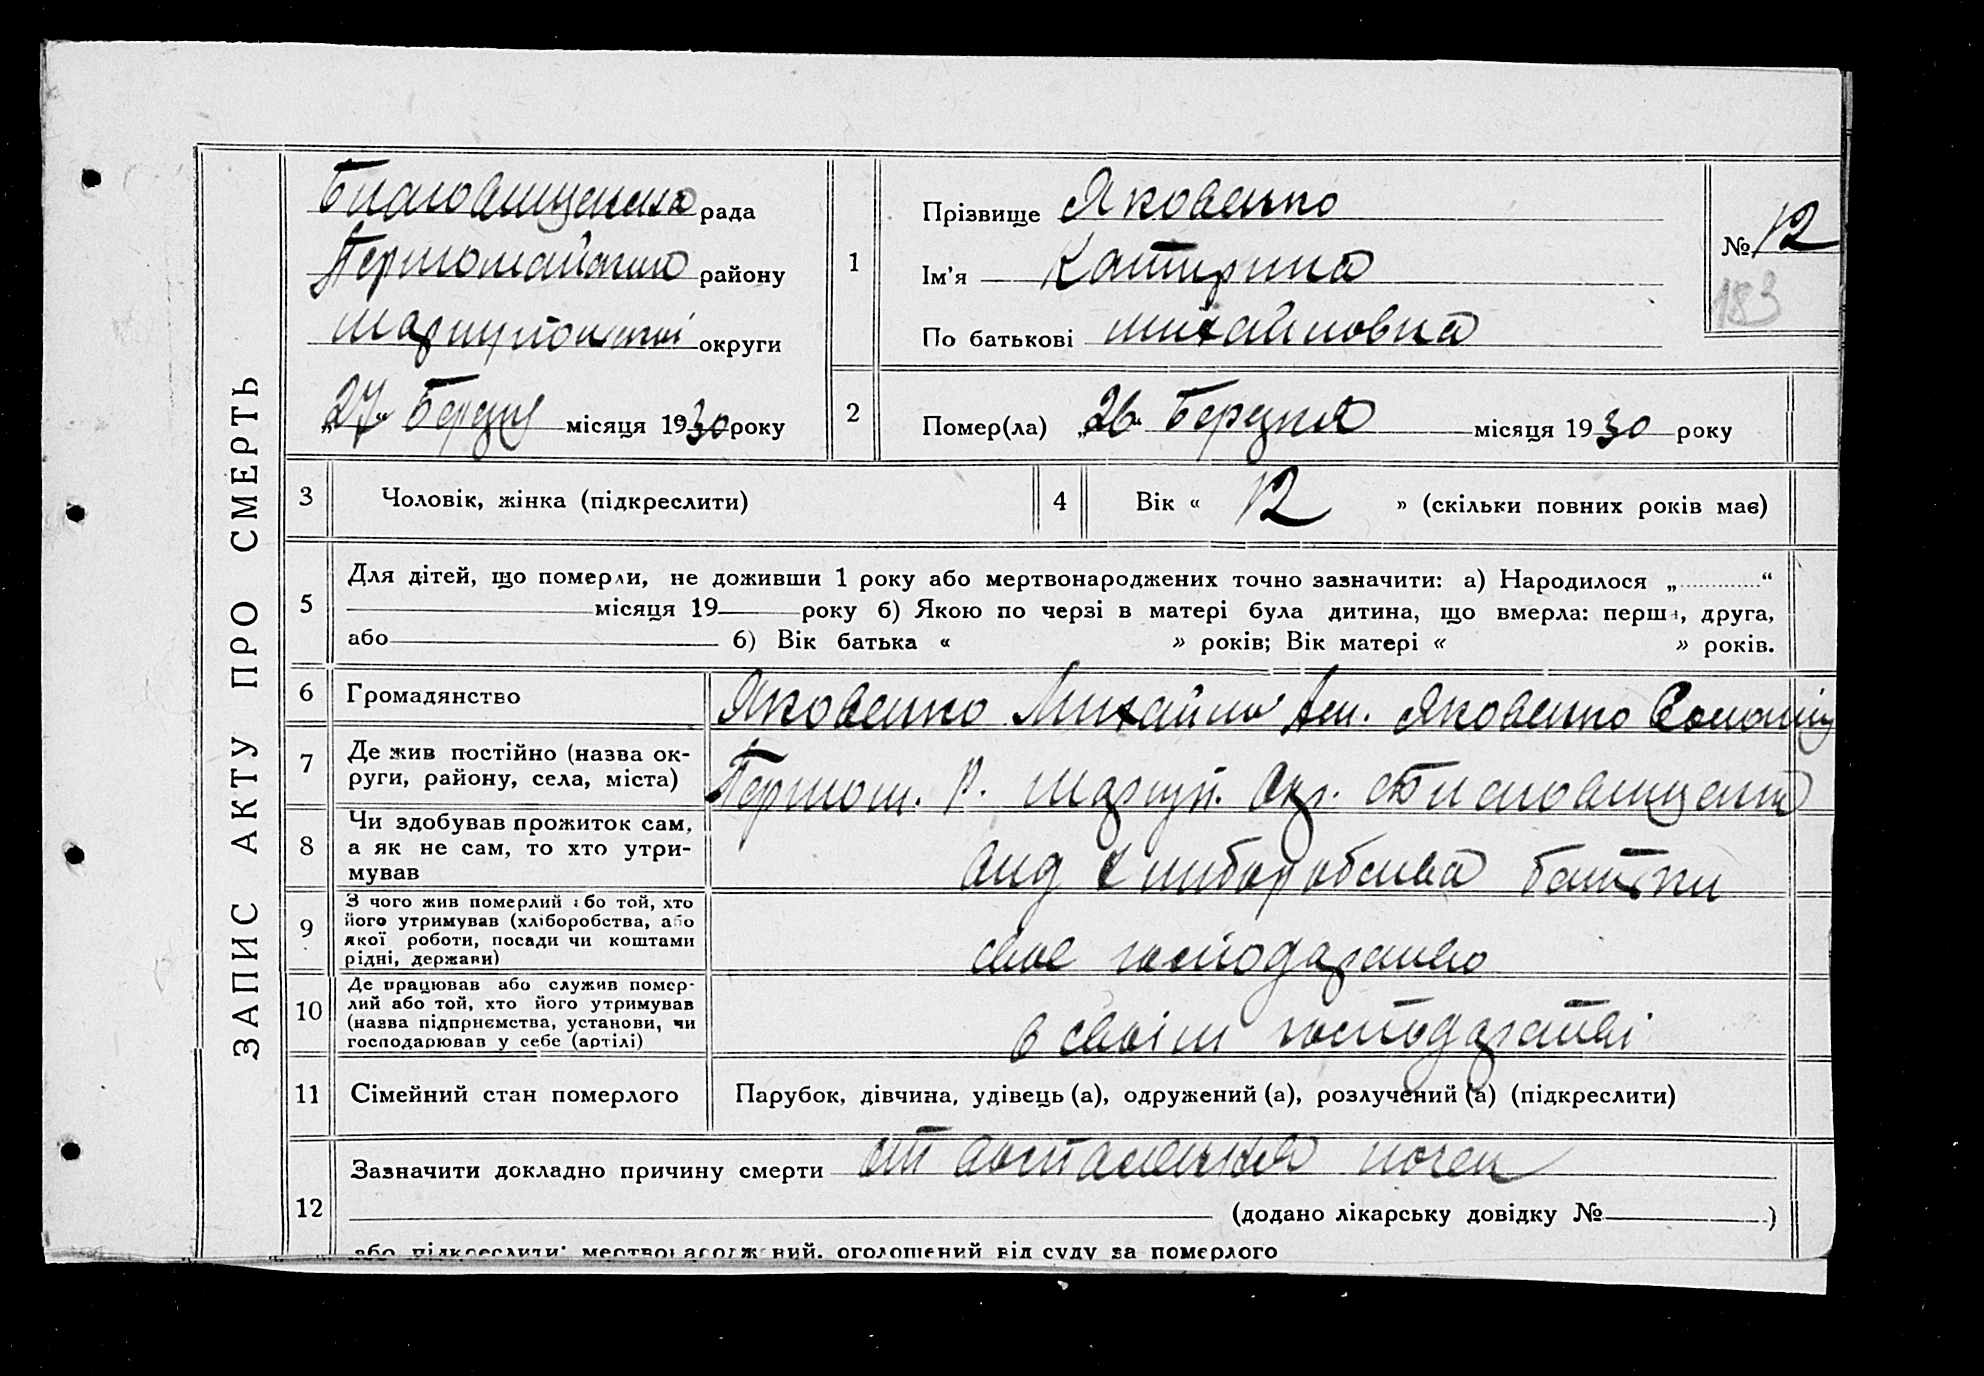 ЗАПИС АКТУ ПРО СМЕРТЬ
Благовищенська рада
Першомайского району
Маріупольскої округи
„27“ Березня місяця 1930 року
1
Прізвище Яковенко
Ім’я Катирина
По батькові Михайловна
№ 12
183
2
Помер(ла) „26“ Березня місяця 1930 року
3
Чоловік, жінка (підкреслити)
4
Вік « 12 » (скільки повних років має)
5
Для дітей, що померли, не доживши 1 року або мертвонароджених точно зазначити: а) Народилося „ “
місяця 19 року б) Якою по черзі в матері була дитина, що вмерла: перша, друга,
або б) Вік батька « » років; Вік матері « » років.
6
Громадянство
Яковенко Михайло Яковенко
7
Де жив постійно (назва ок-
руги, району, села, міста)
Першом. Р. Маріуп. Окр.
8
Чи здобував прожиток сам,
а як не сам, то хто утри-
мував
від хлиборобства батьки
9
З чого жив померлий або той, хто
його утримував (хліборобства, або
якої роботи, посади чи коштами
рідні, держави)
своє господарство
10
Де працював або служив помер-
лий або той, хто його утримував
(назва підприємства, установи, чи
господарював у себе (артілі)
в своім господарстві
11
Сімейний стан померлого
Парубок, дівчина, удівець (а), одружений (а), розлучений (а) (підкреслити)
12
Зазначити докладно причину смерти от
(додано лікарську довідку № )
або підкреслити: мертвонароджений, оголошений від суду за померлого